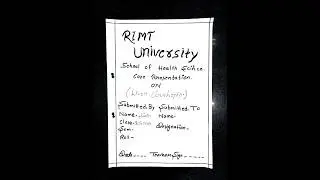 RIMT
University
School of Health Science
Case Presentation
ON
Submitted By Submitted To
Name- Name-
Class- Designation-
Sem-
Roll-
Date---- Teacher Sign-----